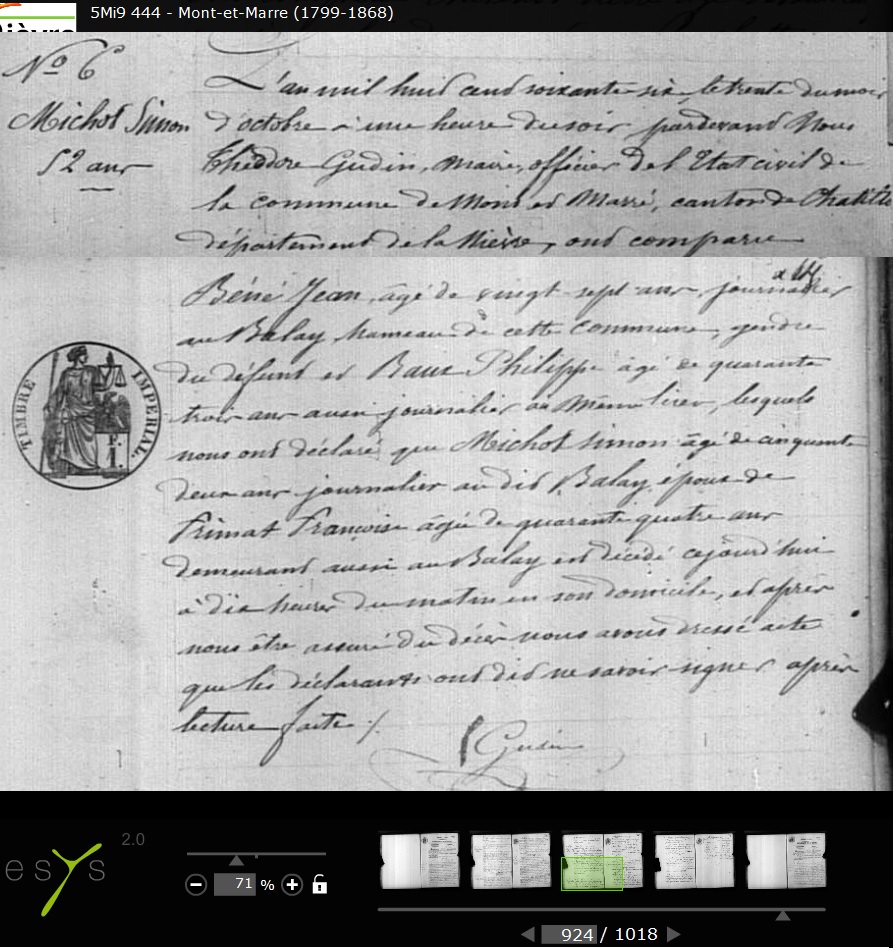 5Mi9 444 - Mont-et-Marre (1799-1868)
Nº 6
Michot Simon
52 ans
L'an mil huit cent soixante six, le trente du mois
d'octobre à une heure du soir, pardevant Nous
Théodore Gudin, Maire, officier de l'Etat civil de
la commune de Mont et Marré, canton de Chatillon
département de la Nièvre, ont comparu
Béné Jean, âgé de vingt-sept ans, journalier
au Balay, hameau de cette commune, gendre
du défunt et Philippe âgé de quarante
trois ans aussi journalier au même lieu, lesquels
nous ont déclaré que Michot Simon âgé de cinquante
deux ans journalier au dit Balay, époux de
Primat Françoise âgée de quarante quatre ans
demeurant aussi au Balay est décédé cejourd'hui
à dix heures du matin en son domicile, et après
nous être assuré du décès nous avons dressé acte
que les déclarants ont dit ne savoir signer après
lecture faite ./.
Gudin
TIMBRE IMPERIAL
esys 2.0
71 %
924 / 1018